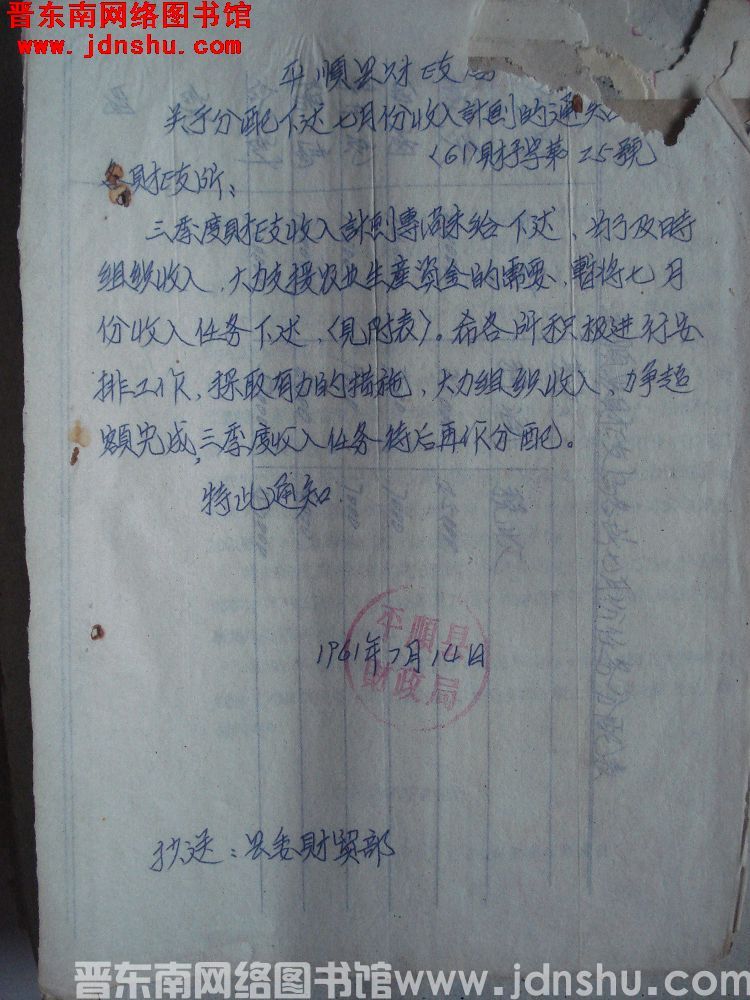 晋东南网络图书馆
www.jdnshu.com
平順县财政局
关于分配下达七月份收入計划的通知
(61)財预字第25號
财政所：
三季度财政收入計划專尚未給下达，为了及時
组织收入，大力支援农业生產资金的需要，暫将七月
份收入任务下达，(见附表)。希各所积极进行安
排工作，採取有力的措施，大力组织收入，力争超
额完成，三季度收入任务待后再作分配。
特此通知
1961年7月14日
平順县
财政局
抄送：县委財贸部
晋东南网络图书馆www.jdnshu.com